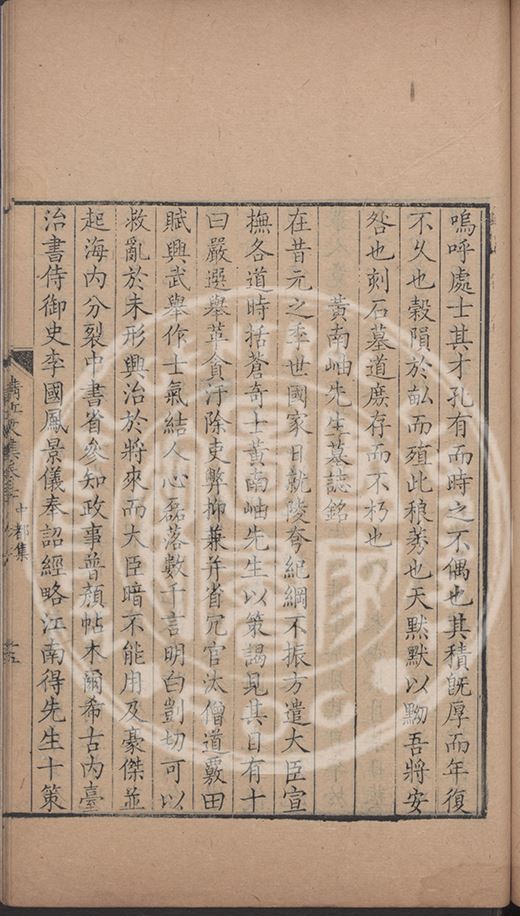 嗚呼處士其才孔有而時之不偶也其積既厚而年復
不久也穀隕於畝而殖此稂莠也天默默以黝吾將安
咎也刻石墓道庶存而不朽也
黃南岫先生墓誌銘
在昔元之季世國家日就陵夸紀綱不振方遣大臣宣
撫各道時括蒼奇士黃南岫先生以策謁見其目有十
曰嚴選舉革貪汙除吏弊抑兼并省冗官汰僧道覈田
賦興武舉作士氣結人心磊落數千言明白剴切可以
救亂於未形興治於將來而大臣暗不能用及豪傑並
起海内分裂中書省叅知政事普顔帖木爾希古内臺
治書侍御史李國鳳景儀奉詔經略江南得先生十策
中都集